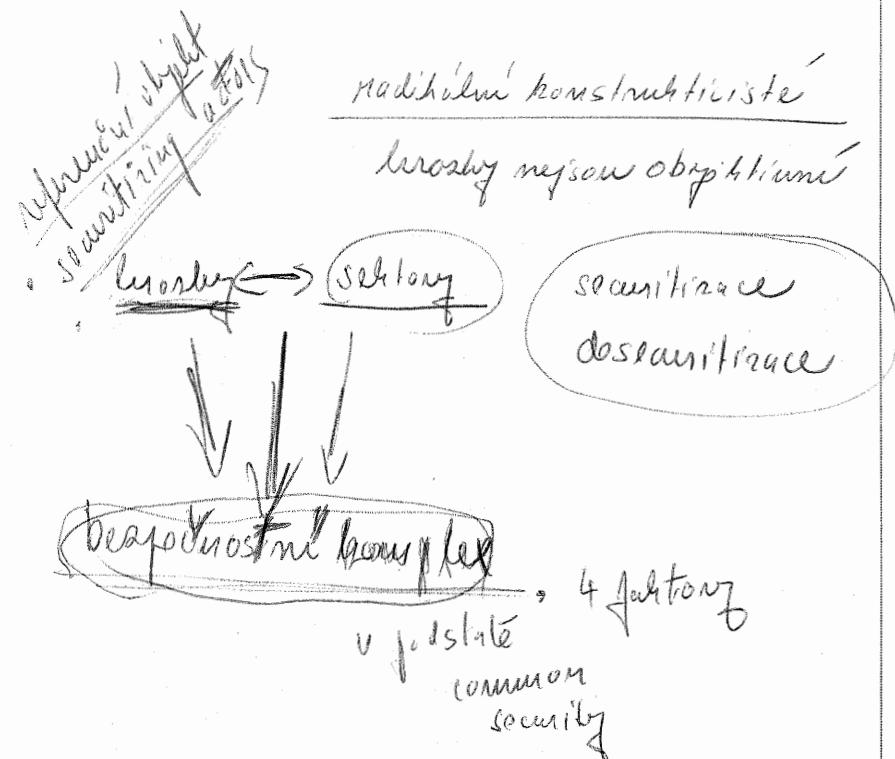 referenční objekt
securitizing actors
radikální konstruktivisté
hrozby nejsou objektivní
hrozby ↔ sektory
securitizace
desecuritizace
bezpečnostní komplex
4 faktory
v podstatě
common
security